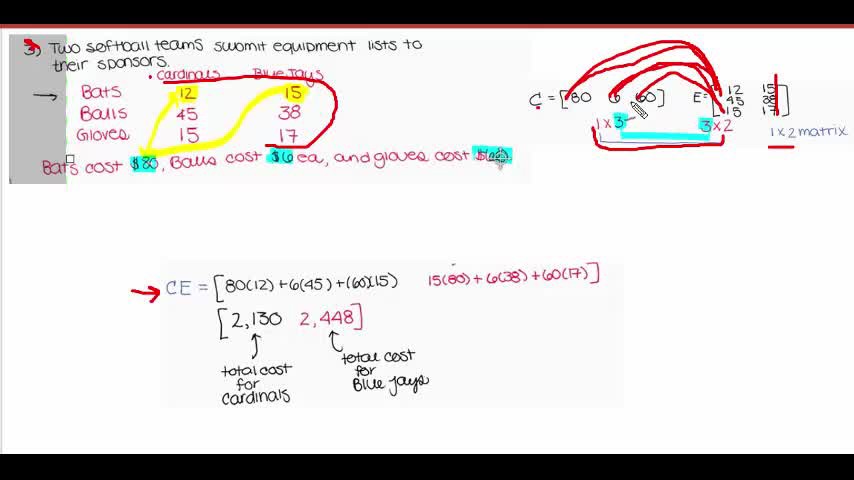 3) Two softball teams submit equipment lists to
their sponsors.
Cardinals Blue Jays
Bats 12 15
Balls 45 38
Gloves 15 17
Bats cost $80, Balls cost $6 ea, and gloves cost $60.
C = [80 6 60] E = [12 15
45 38
15 17]
1 x 3 3 x 2
1 x 2 matrix
CE = [80(12) + 6(45) + (60)(15) 15(80) + 6(38) + 60(17)]
[2,130 2,448]
total cost for cardinals
total cost for Blue jays